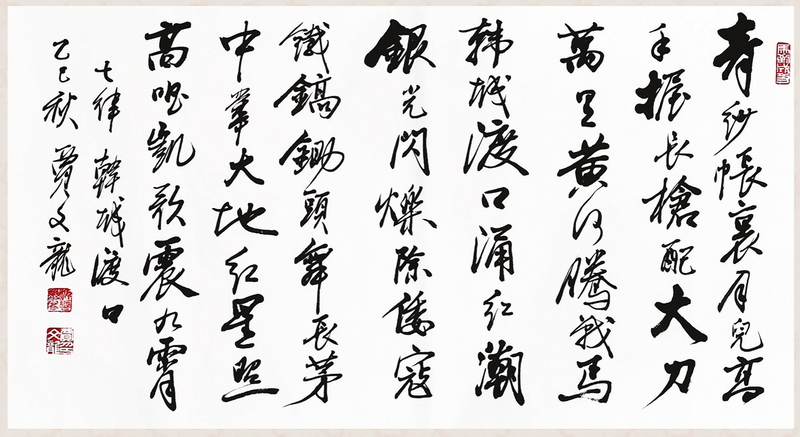 青紗帳裏月兒高
手握长槍配大刀
萬里黄河騰戰馬
韩城渡口涌红潮
銀光閃爍除倭寇
鐵鎬鋤頭舞长茅
中華大地红星照
高唱凱歌震九霄
七律 韓城渡口
乙巳秋 賈文龍